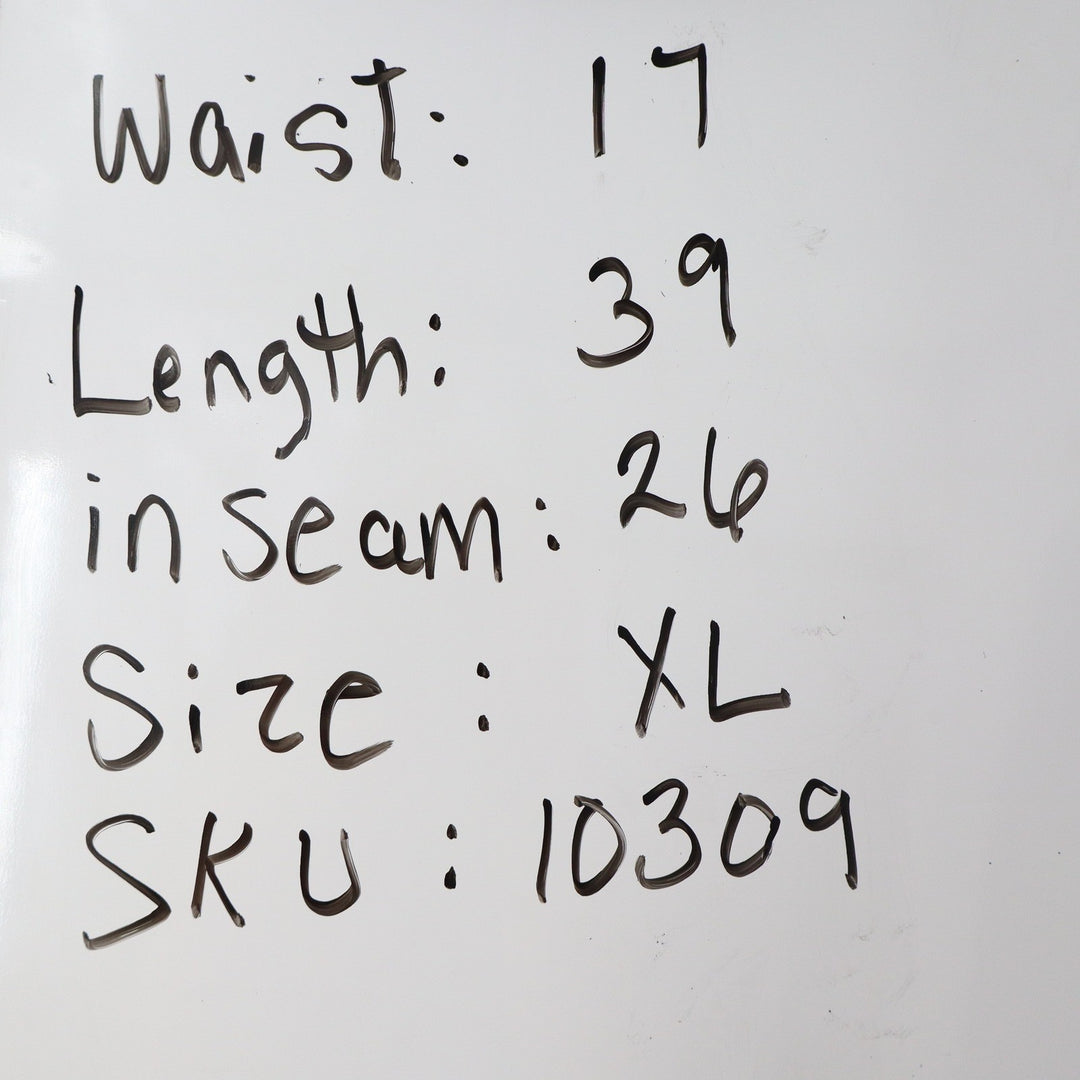 Waist: 17
Length: 39
inseam: 26
Size: XL
SKU: 10309